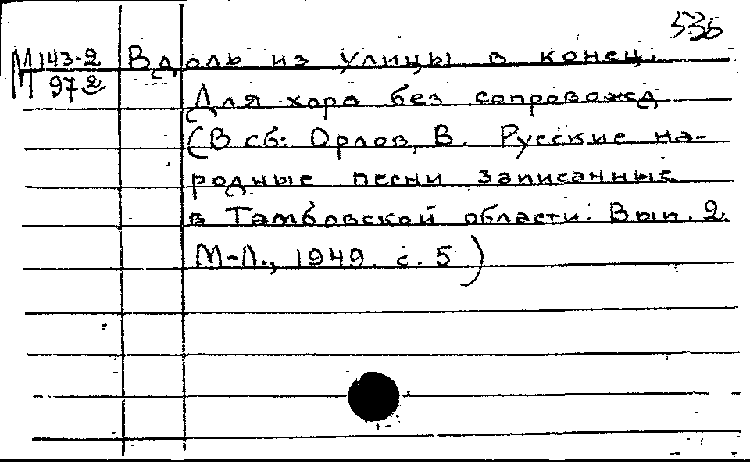 535
М 143-2 Вдоль из улицы в конец.
97 2
Для хора без сопровожд
(В сб: Орлов, В. Русские на-
родные песни записанные
в Тамбовской области. Вып. 2.
М-Л., 1949. с. 5)